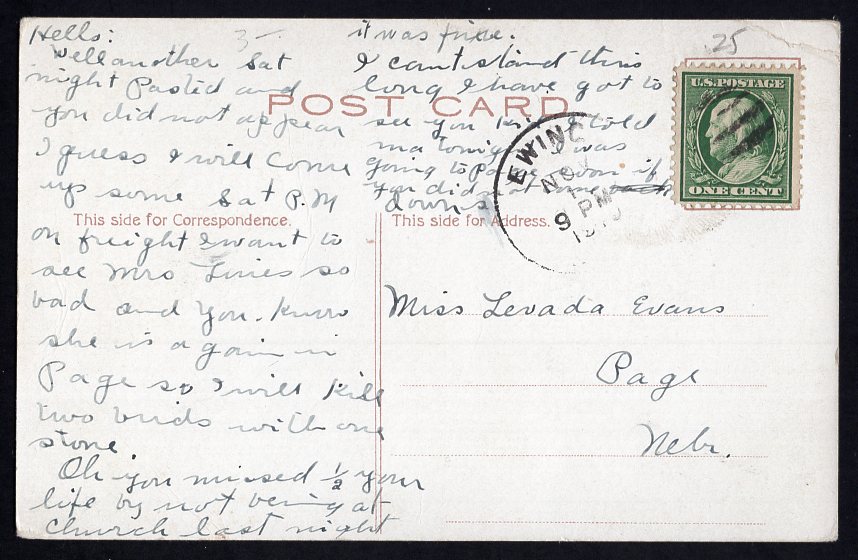 Hello:
Well another Sat
night Pasted and
you did not appear
I guess I will come
up some Sat P.M
on freight I want to
see Mrs Lines so
bad and you know
she is again in
Page so I will kill
two birds with one
stone.
Oh you missed 1/2 your
life by not being at
church last night
it was fine.
I cant stand this
long I have got to
see you Kid I told
ma tonight I was
going to Page soon if
you did not come
down.
3
25
POST CARD
This side for Correspondence.
This side for Address.
EWING
NOV
9 PM
U.S. POSTAGE
ONE CENT
Miss Levada Evans
Page
Nebr.